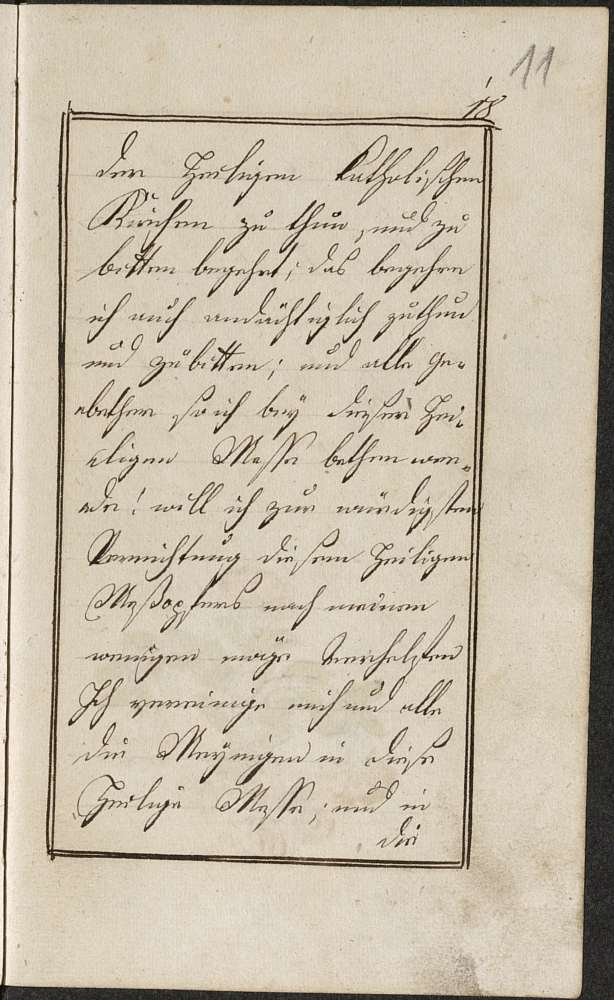 11
18
der Heiligen Catholischen
Kirchen zu thun, und zu
bitten begehrt; das begehre
ich auch andächtiglich zuthun
und zubitten; und alle ge-
bether so ich bey dieser Hei-
ligen Messe bethen wer-
de! will ich zur würdigsten
Verrichtung diesem Heiligen
Meßopfers nach meinem
wenigen
Ich vereinige mich und alle
die Meynigen in diese
Heilige Messe; und in
die